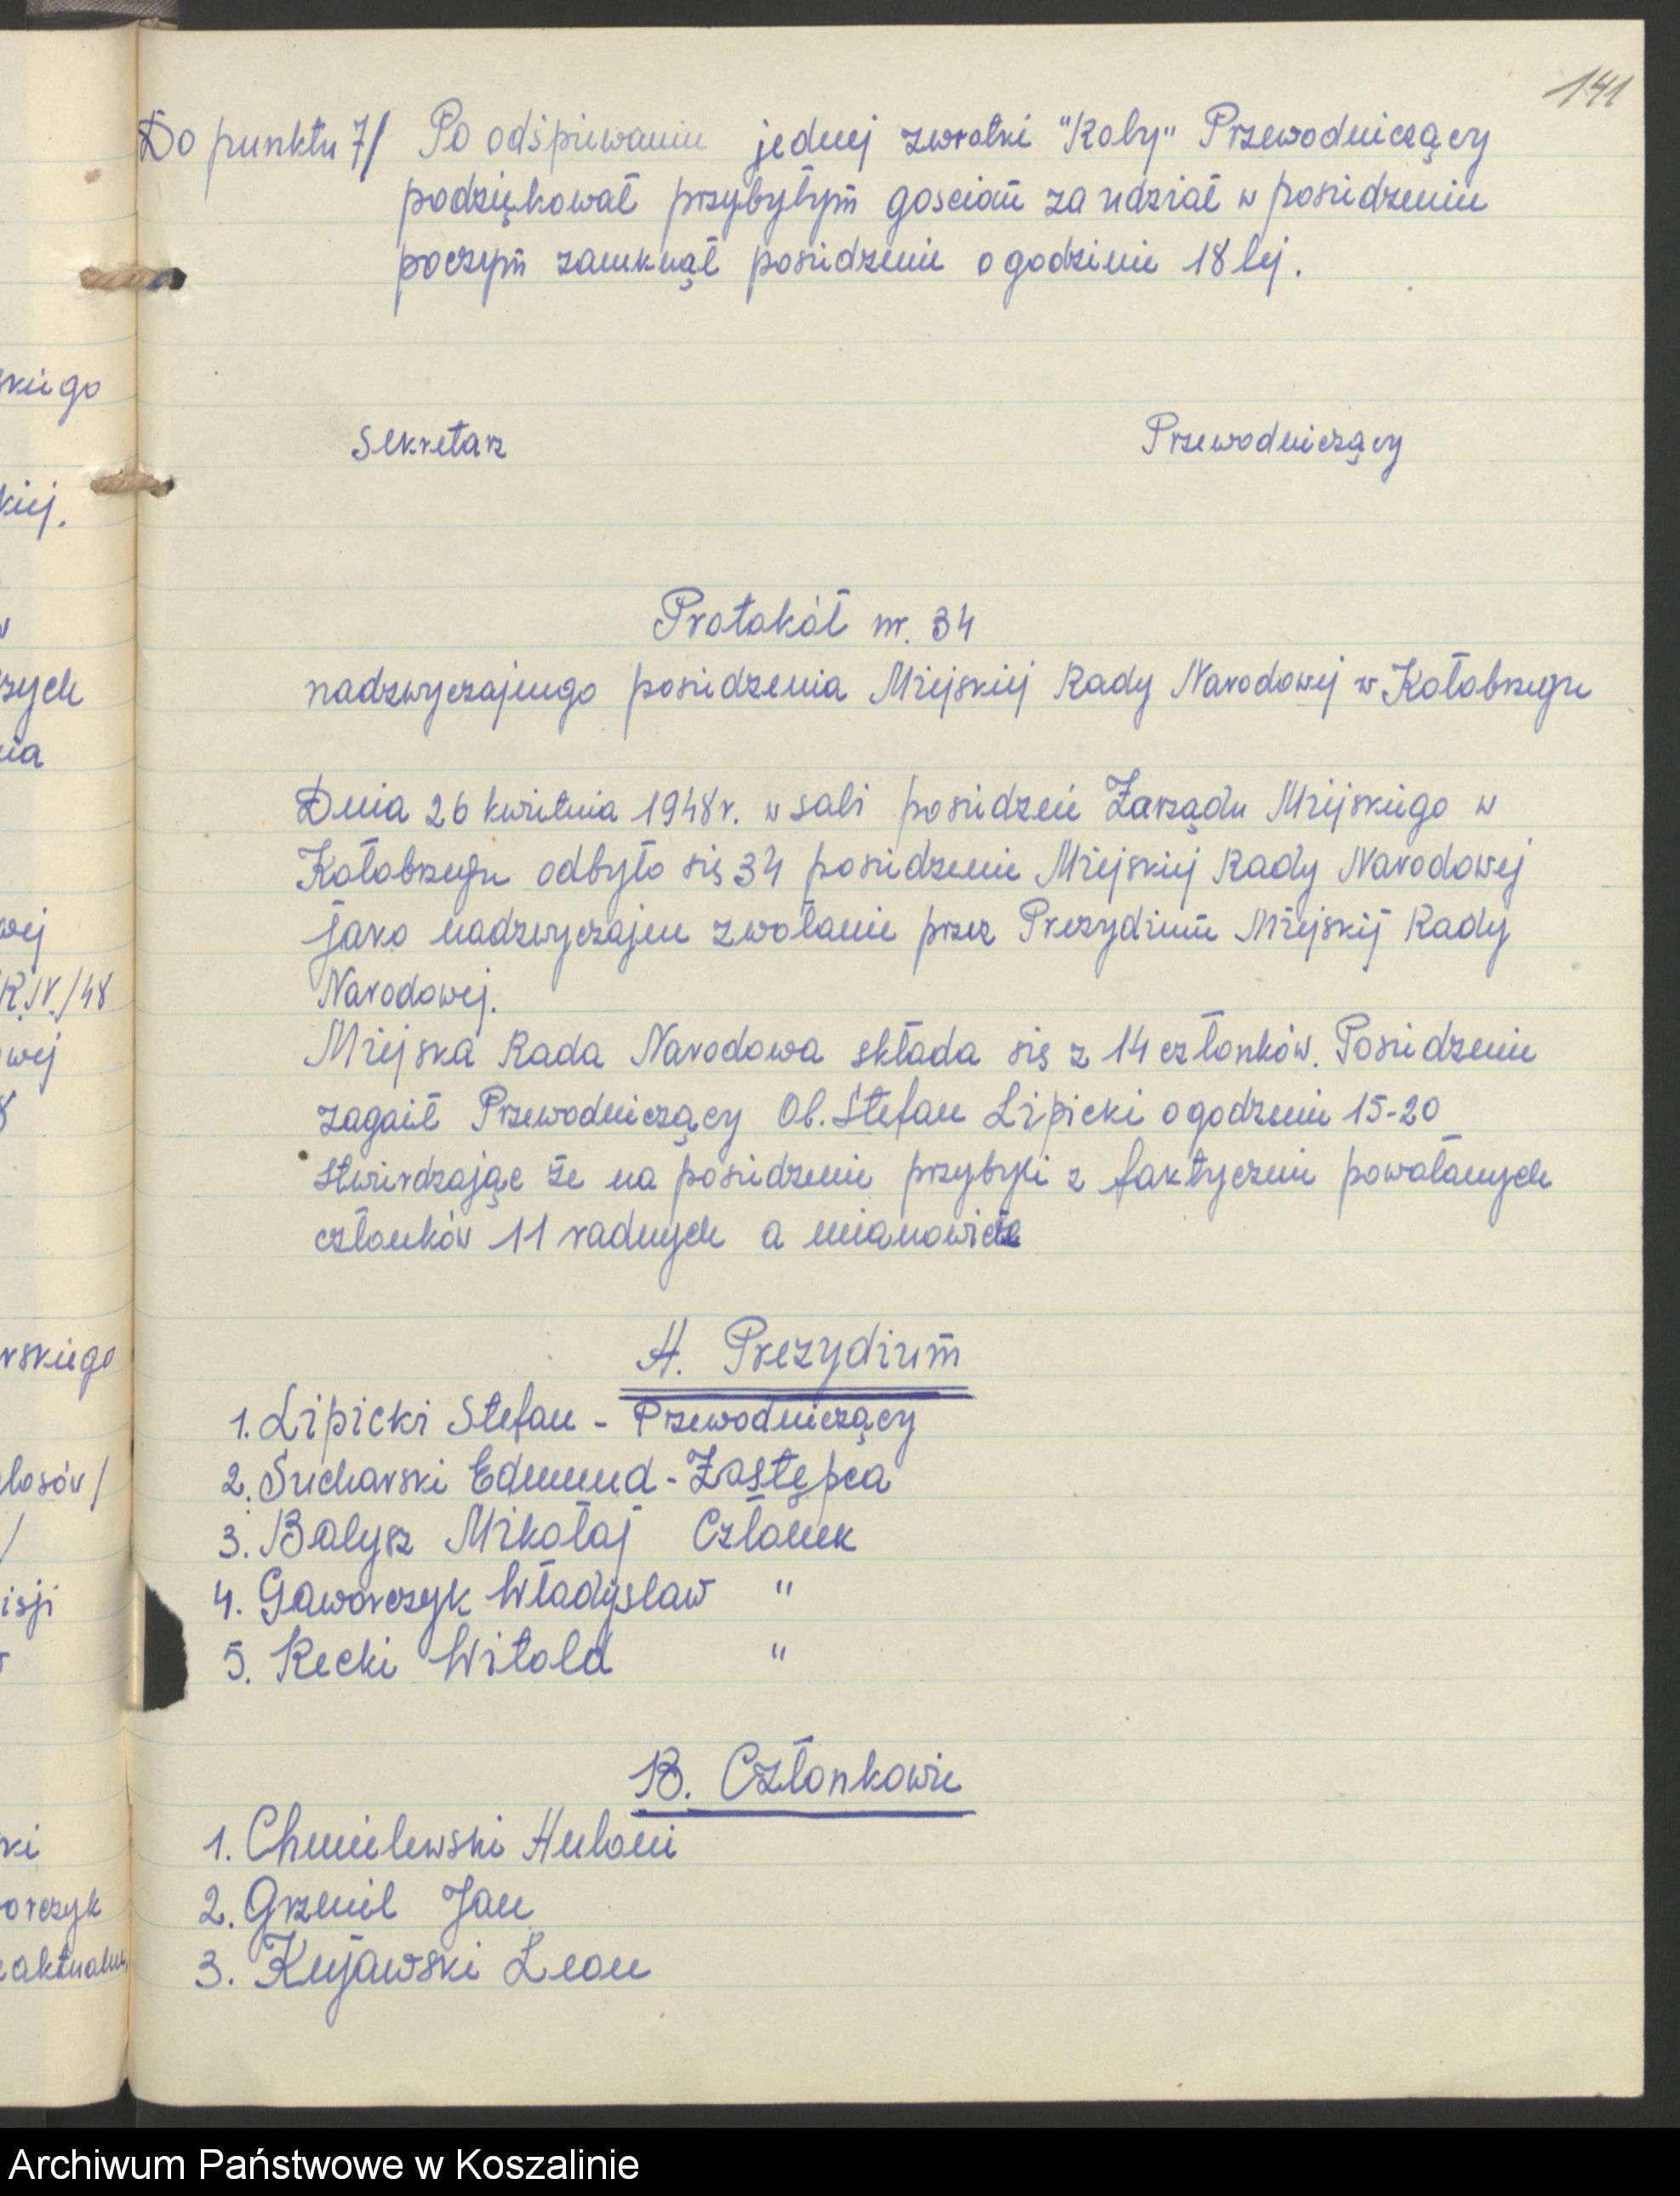 141
Do punktu 7/ Po odśpiewaniu jednej zwrotki "Roty" Przewodniczący
podziękował przybyłym gosciom za udział w posiedzeniu
poczym zamknął posiedzenie o godzinie 18tej.
Sekretarz Przewodniczący
Protokół nr. 34
nadzwyczajnego posiedzenia Miejskiej Rady Narodowej w Kołobrzegu
Dnia 26 kwietnia 1948r. w sali posiedzeń Zarządu Miejskiego w
Kołobrzegu odbyło się 34 posiedzenie Miejskiej Rady Narodowej
jako nadzwyczajne zwołanie przez Prezydium Miejskiej Rady
Narodowej.
Miejska Rada Narodowa składa się z 14 członków. Posiedzenie
zagaił Przewodniczący Ob. Stefan Lipicki o godzenie 15-20
stwierdzając że na posiedzenie przybyli z faktycznie powołanych
członków 11 radnych a mianowicie
A. Prezydium
1. Lipicki Stefan - Przewodniczący
2. Sucharski Edmund - Zastępca
3. Balysz Mikołaj Członek
4. Gaworczyk Władysław "
5. Recki Witold "
B. Członkowie
1. Chmielewski Antoni
2. Grzmil Jan
3. Kujawski Leon
skiego
kiej.
nia
wej
R.IV./48
wej
rskiego
łosów/
isji
ki
orczyk
Archiwum Państwowe w Koszalinie